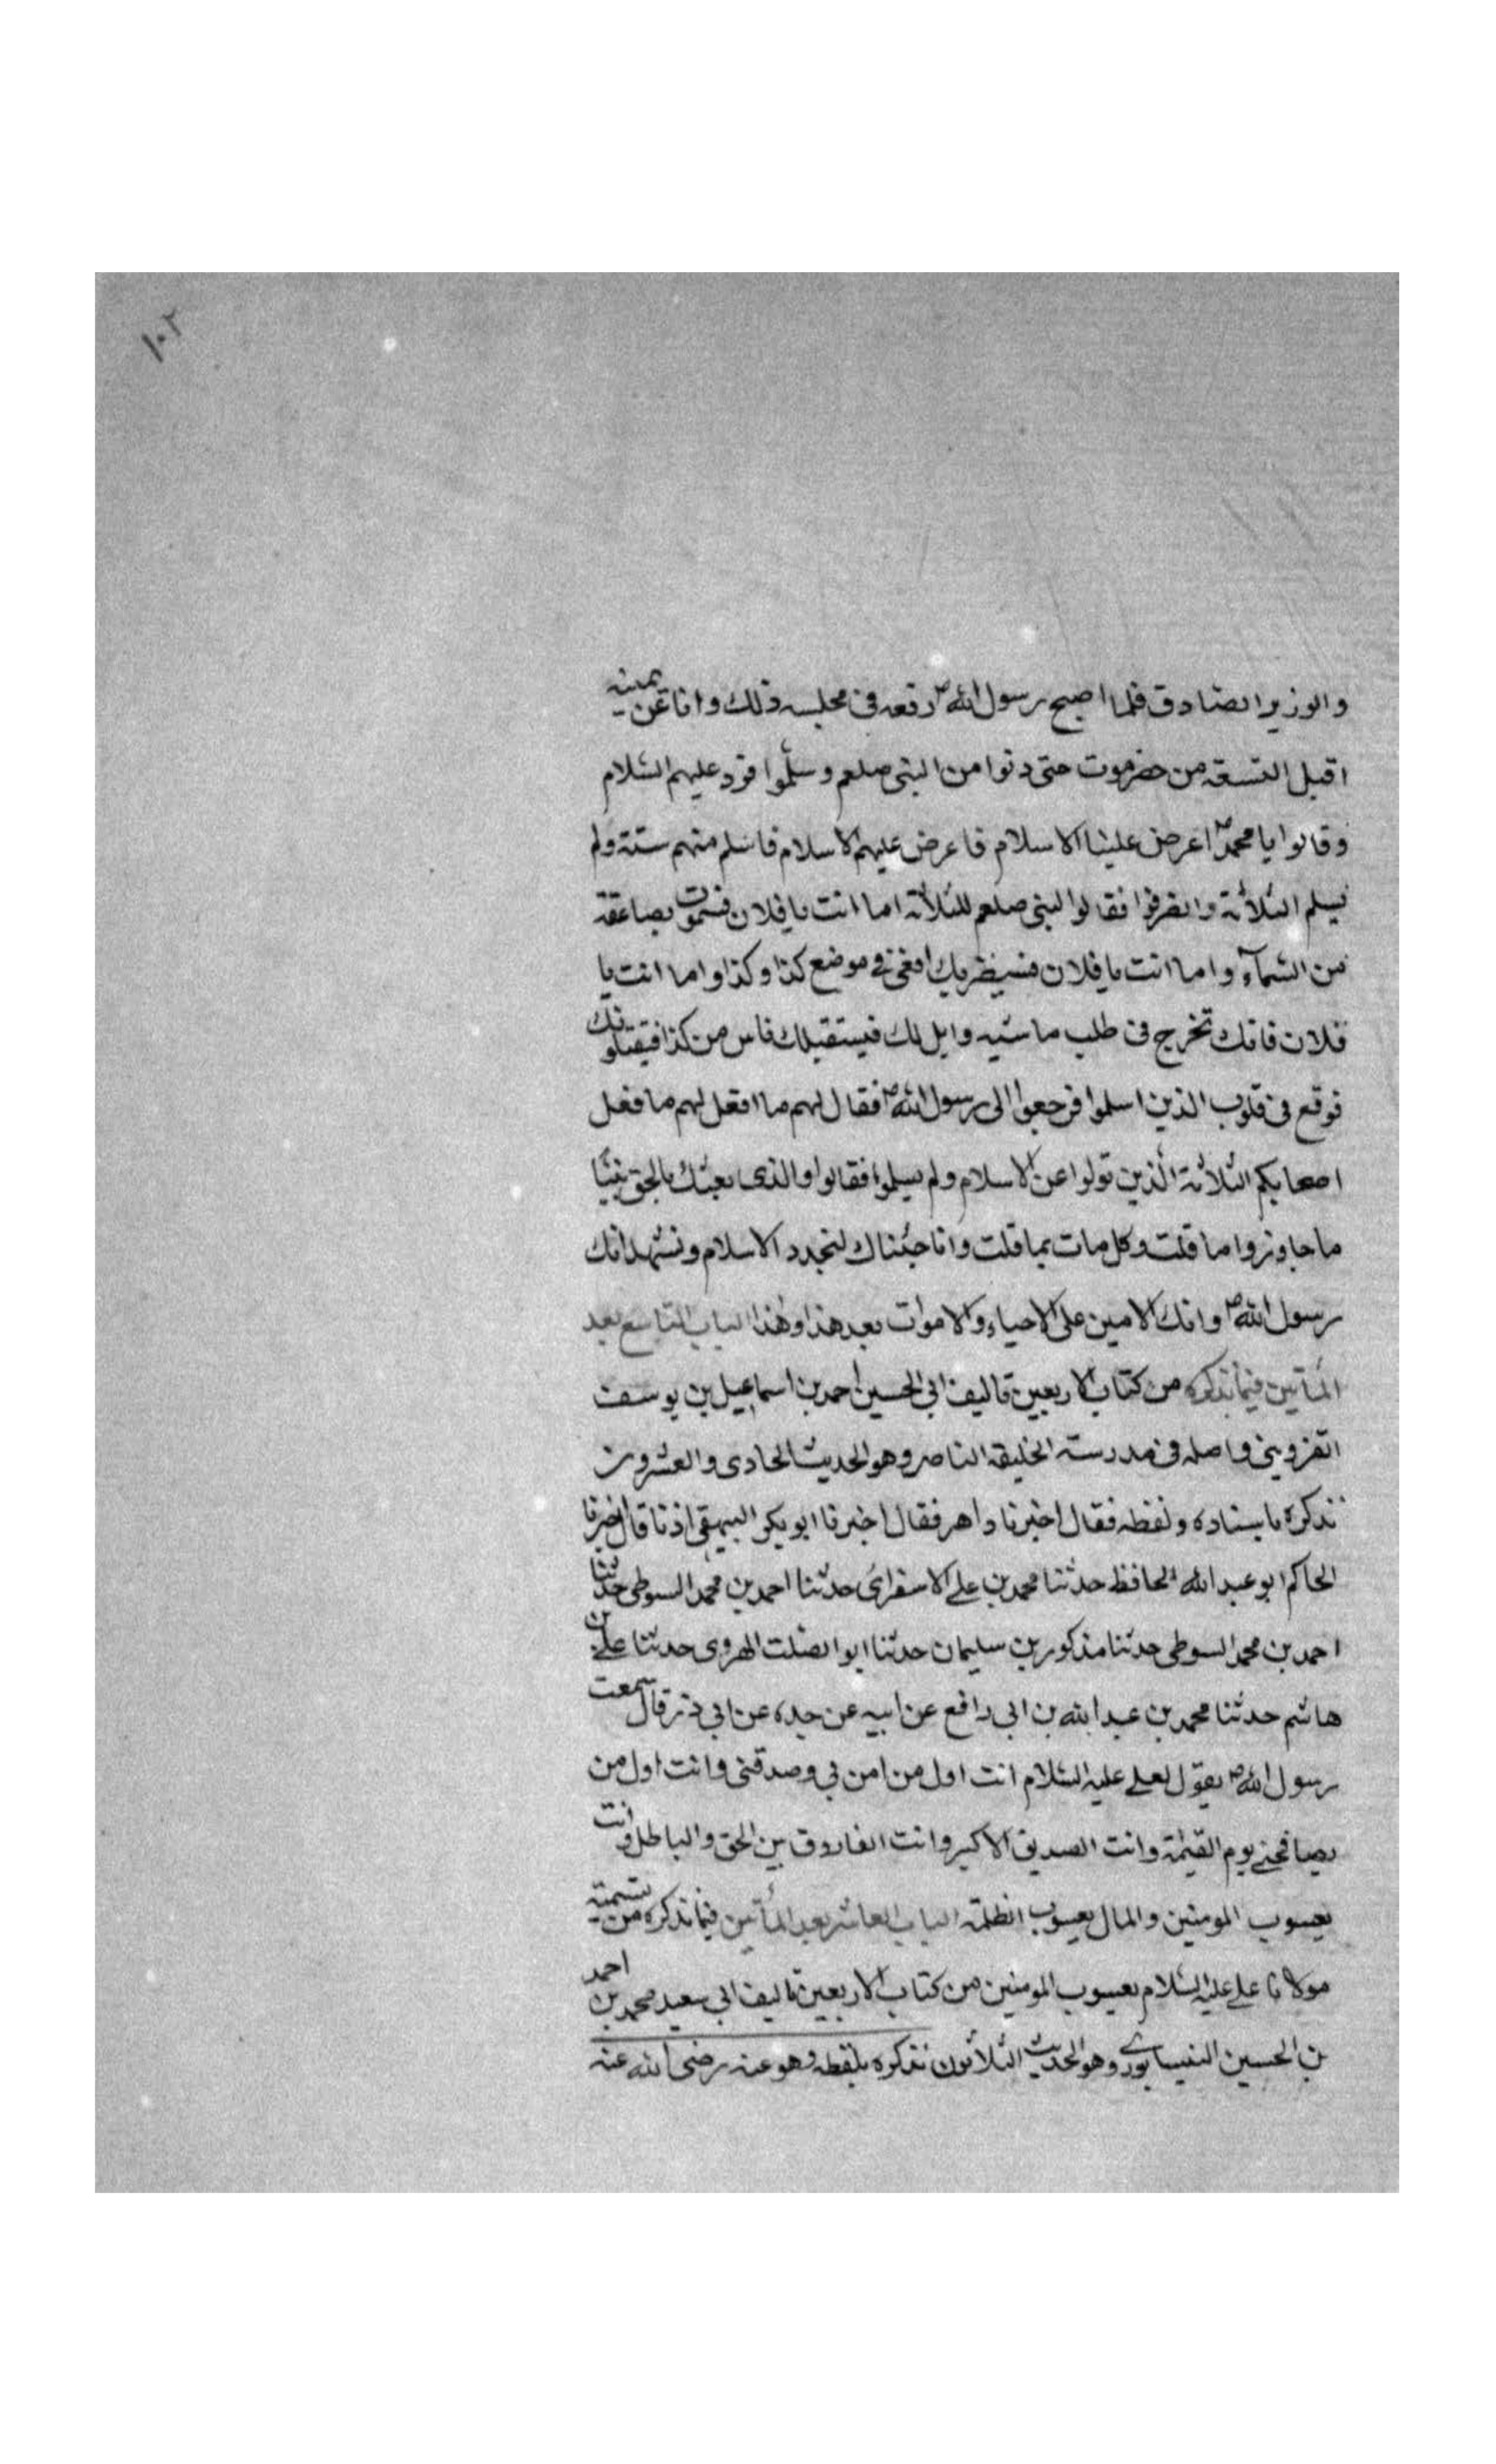 ١٠٢
والوزير الصادق فلما اصبح رسول الله ص رفعه فى مجلسه ذلك وانا عن يمينه
اقبل التسعة من حضرموت حتى دنوا من النبى صلعم وسلّموا فرد عليهم السّلام
وقالوا يا محمد ص اعرض علينا الاسلام فاعرض عليهم الاسلام فاسلم منهم ستة ولم
يسلم الثلاثة وانصرفوا فقالوا النبى صلعم للثلاثة اما انت يا فلان فستموت بصاعقة
من السّمآء واما انت يا فلان فسيضربك افعى فى موضع كذا وكذا واما انت يا
فلان فانك تخرج فى طلب ماشيه وابل لك فيستقبلك ناس من كذا فيقتلونك
فوقع فى قلوب الذين اسلموا فرجعوا الى رسول الله ص فقال لهم ما افعل لهم ما فعل
اصحابكم الثلاثة الّذين تولوا عن الاسلام ولم يسلموا فقالوا والذى بعثك بالحق نبيّا
ما جاوزوا ما قلت وكل مات بما قلت وانا جئناك لنجدد الاسلام ونشهد انك
رسول الله ص وانك الامين على الاحياء والاموات بعد هذا وهذا الباب التاسع بعد
المأتين فيما نذكره من كتاب الاربعين تاليف ابى الحسين احمد بن اسماعيل بن يوسف
القزوينى واصله فى مدرسة الخليفة الناصر وهو الحديث الحادى والعشرون
نذكره باسناده ولفظه فقال اخبرنا داهر فقال اخبرنا ابو بكر البيهقى اذنا قال اخبرنا
الحاكم ابو عبد الله الحافظ حدثنا محمد بن على الاسفرائى حدثنا احمد بن محمد السوطى حدثنا
احمد بن محمد السوطى حدثنا مذكور بن سليمان حدثنا ابو الصّلت الهروى حدثنا على بن
هاشم حدثنا محمد بن عبد الله بن ابى رافع عن ابيه عن جده عن ابى ذر قال سمعت
رسول الله ص يقول لعلى عليه السّلام انت اول من امن بى وصدقنى وانت اول من
يصافحنى يوم القيمة وانت الصديق الاكبر وانت الفاروق بين الحق والباطل وانت
يعسوب المومنين والمال يعسوب الظلمة الباب العاشر بعد المأتين فيما نذكره من تسمية
مولانا على عليه السّلام يعسوب المومنين من كتاب الاربعين تاليف ابى سعيد محمد بن احمد
بن الحسين النيسابورى وهو الحديث الثلاثون نذكره بلفظه وهو عنه رضى الله عنه